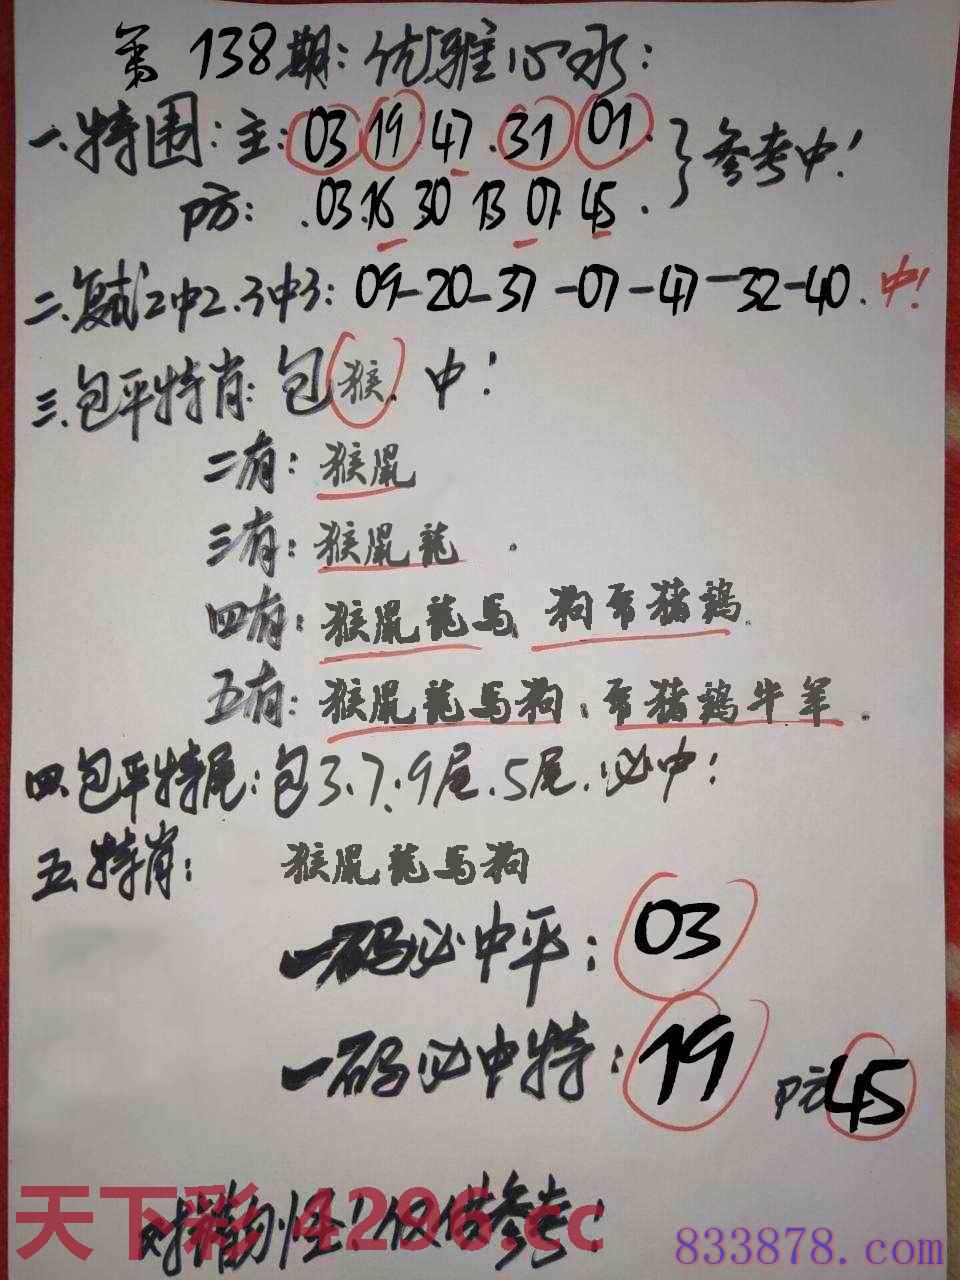 第138期:优雅心水:
一.特围:主:03 19 47.31 01.
防:.03.16 30 13 07.45.
}参考中!
二.复试2中2.3中3:09-20-37-07-47-32-40.中!
三.包平特肖:包猴.中!
二有:猴鼠
三有:猴鼠龍.
四有:猴鼠龍馬 狗 猪鷄.
五有:猴鼠龍馬狗. 猪鷄牛羊.
四.包平特尾:包3.7.9尾.5尾.必中!
五.特肖: 猴鼠龍馬狗
一码必中平:03
一码必中特:19 防45
勿怪!仅供参考!
天下彩 4296.cc
833878.com